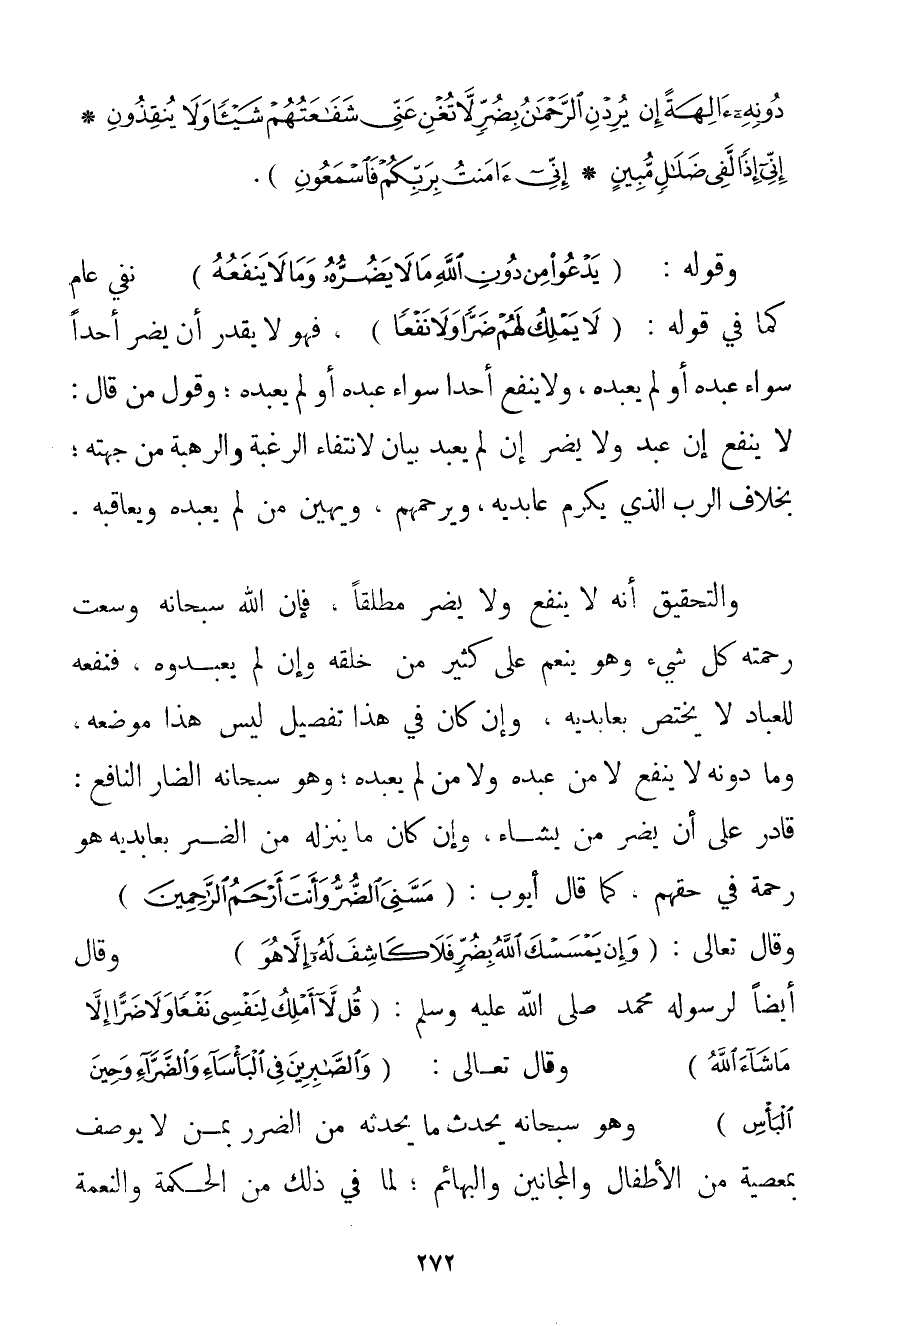 دُونِهِۦٓ ءَالِهَةً إِن يُرِدْنِ ٱلرَّحْمَٰنُ بِضُرٍّ لَّا تُغْنِ عَنِّى شَفَٰعَتُهُمْ شَيْـًٔا وَلَا يُنقِذُونِ *
إِنِّىٓ إِذًا لَّفِى ضَلَٰلٍ مُّبِينٍ * إِنِّىٓ ءَامَنتُ بِرَبِّكُمْ فَٱسْمَعُونِ ) .
وقوله : ( يَدْعُوا۟ مِن دُونِ ٱللَّهِ مَا لَا يَضُرُّهُۥ وَمَا لَا يَنفَعُهُۥ ) نفي عام
كما في قوله : ( لَا يَمْلِكُ لَهُمْ ضَرًّا وَلَا نَفْعًا ) ، فهو لا يقدر أن يضر أحداً
سواء عبده أو لم يعبده ، ولا ينفع أحدا سواء عبده أو لم يعبده ؛ وقول من قال :
لا ينفع إن عبد ولا يضر إن لم يعبد بيان لانتفاء الرغبة والرهبة من جهته ؛
بخلاف الرب الذي يكرم عابديه ، ويرحمهم ، ويهين من لم يعبده ويعاقبه .
والتحقيق أنه لا ينفع ولا يضر مطلقاً ، فإن الله سبحانه وسعت
رحمته كل شيء وهو ينعم على كثير من خلقه وإن لم يعبدوه ، فنفعه
للعباد لا يختص بعابديه ، وإن كان في هذا تفصيل ليس هذا موضعه ،
وما دونه لا ينفع لا من عبده ولا من لم يعبده ؛ وهو سبحانه الضار النافع :
قادر على أن يضر من يشاء ، وإن كان ما ينزله من الضر بعابديه هو
رحمة في حقهم ، كما قال أيوب : ( مَسَّنِىَ ٱلضُّرُّ وَأَنتَ أَرْحَمُ ٱلرَّٰحِمِينَ )
وقال تعالى : ( وَإِن يَمْسَسْكَ ٱللَّهُ بِضُرٍّ فَلَا كَاشِفَ لَهُۥٓ إِلَّا هُوَ ) وقال
أيضاً لرسوله محمد صلى الله عليه وسلم : ( قُل لَّآ أَمْلِكُ لِنَفْسِى نَفْعًا وَلَا ضَرًّا إِلَّا
مَا شَآءَ ٱللَّهُ ) وقال تعالى : ( وَٱلصَّٰبِرِينَ فِى ٱلْبَأْسَآءِ وَٱلضَّرَّآءِ وَحِينَ
ٱلْبَأْسِ ) وهو سبحانه يحدث ما يحدثه من الضرر بمن لا يوصف
بمعصية من الأطفال والمجانين والبهائم ؛ لما في ذلك من الحكمة والنعمة
٢٧٢